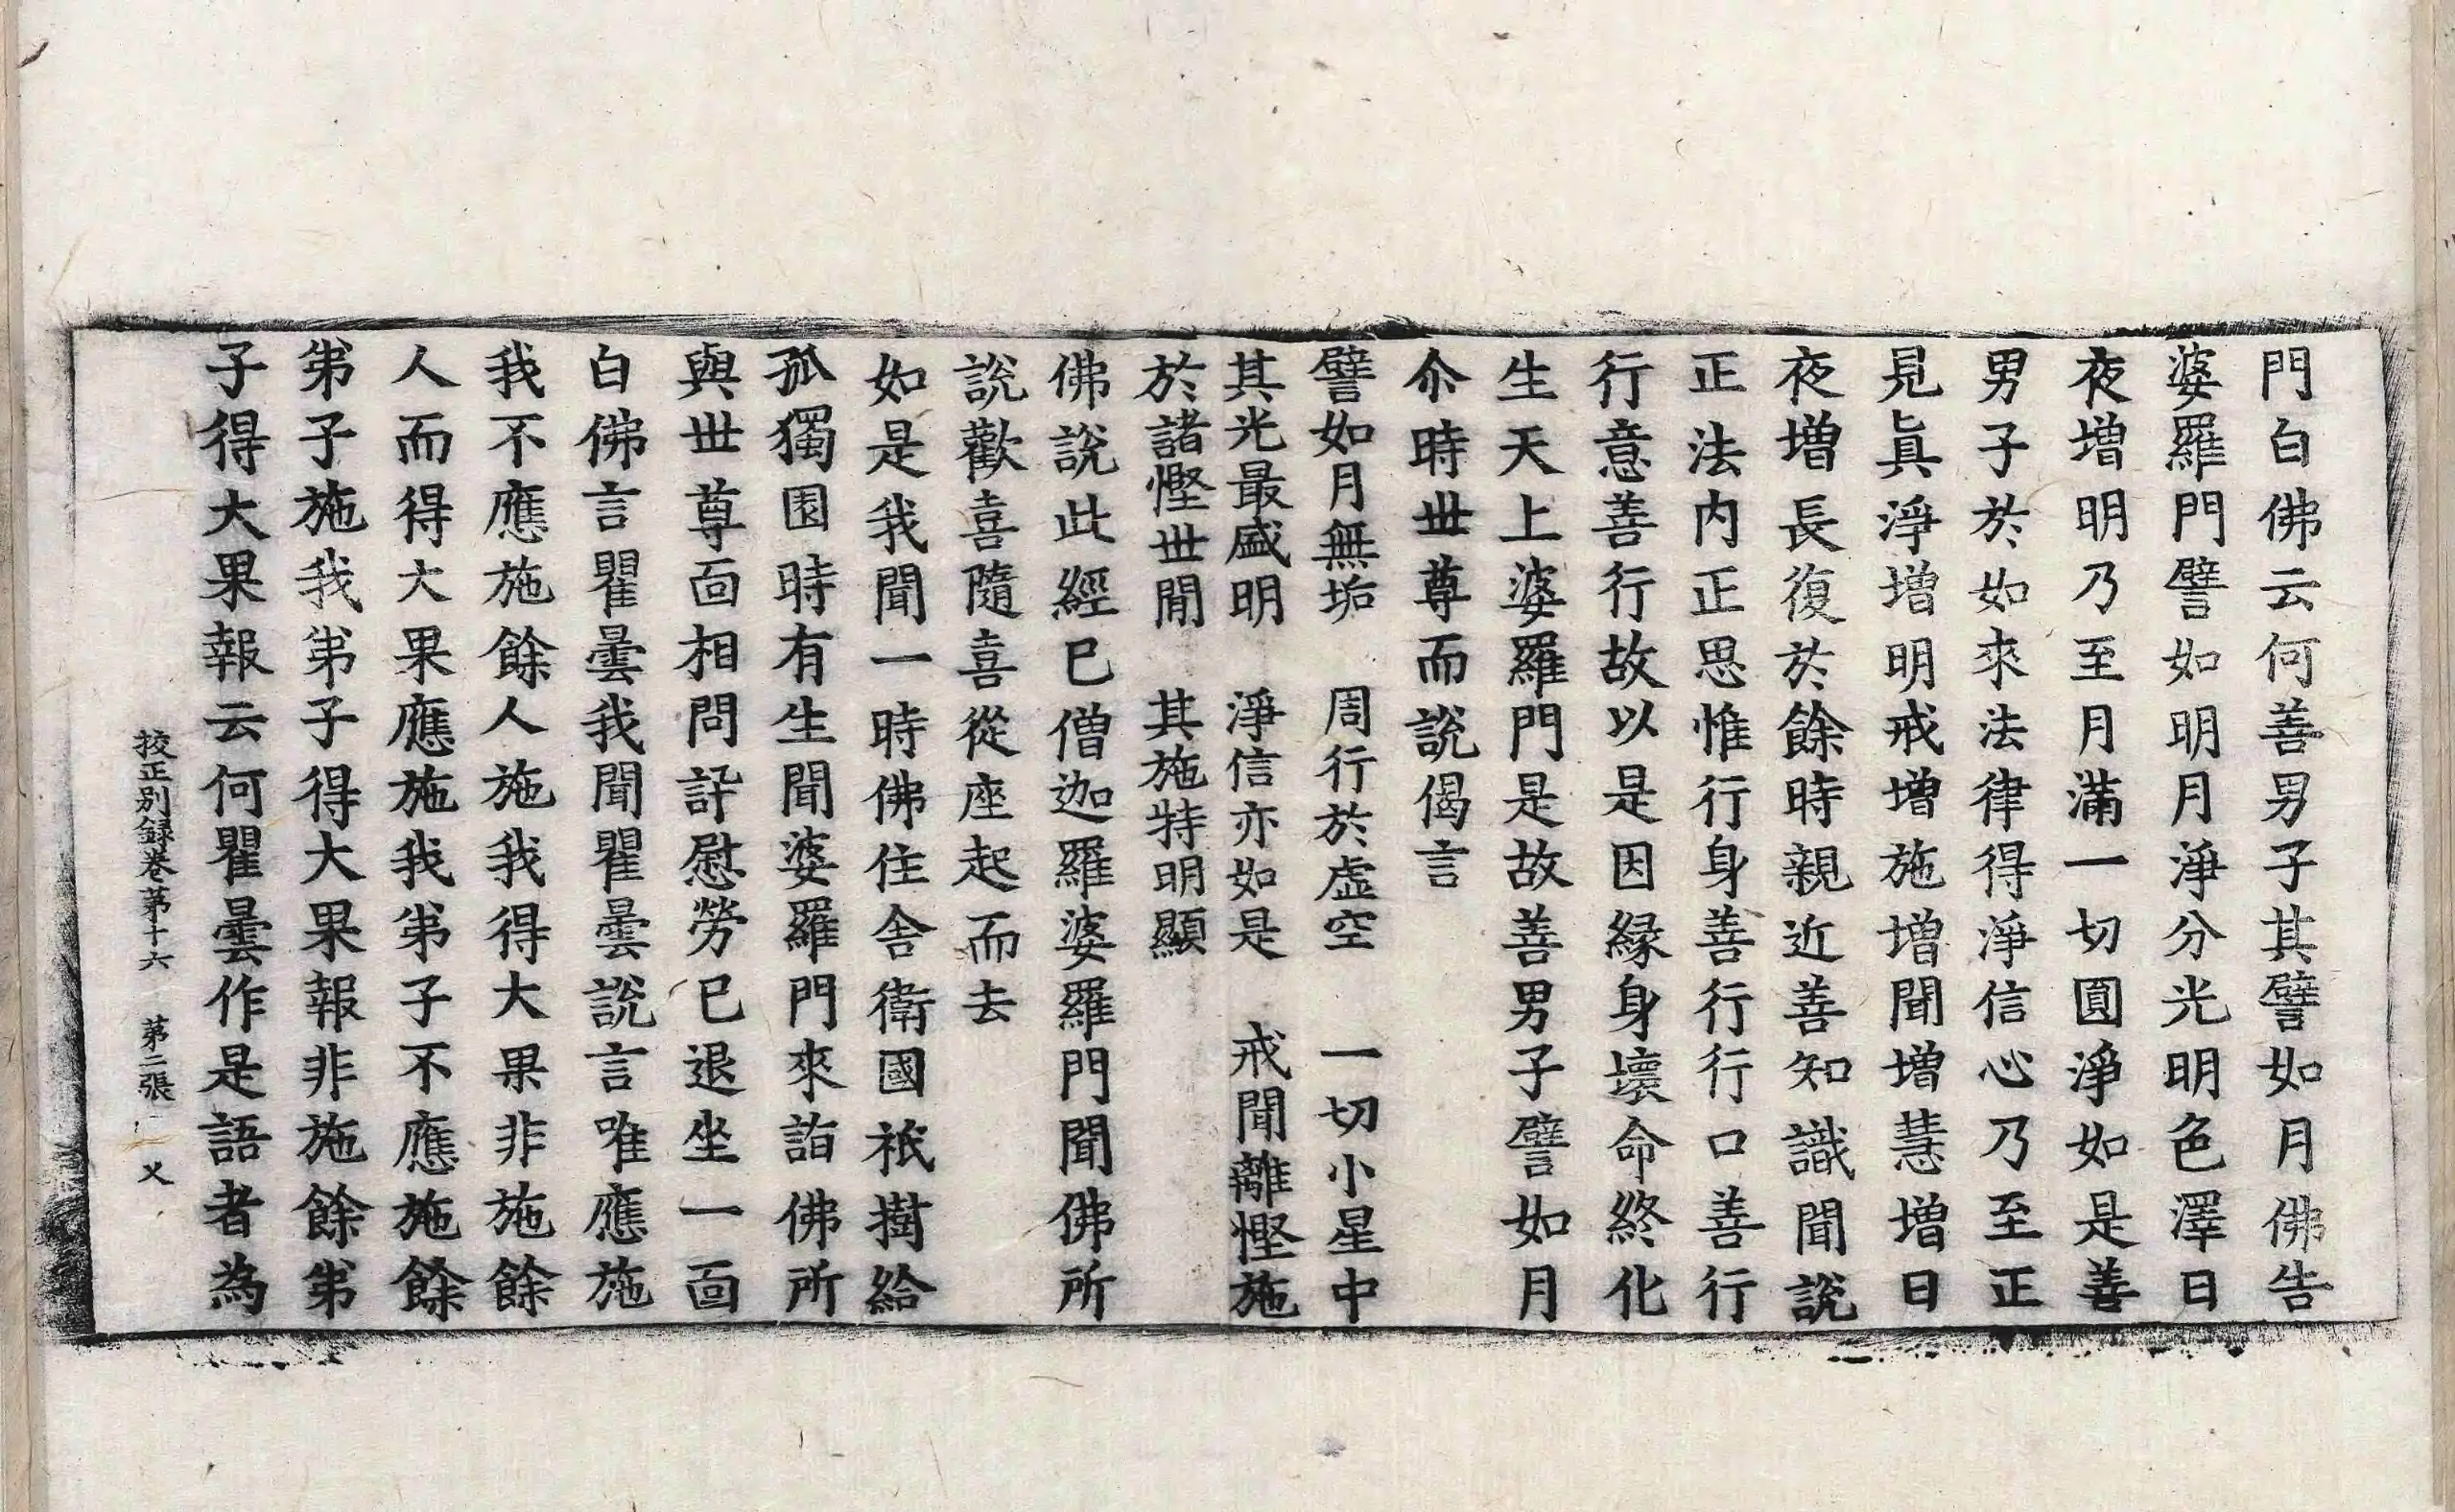 門白佛云何善男子其譬如月佛告
婆羅門譬如明月淨分光明色澤日
夜增明乃至月滿一切圓淨如是善
男子於如來法律得淨信心乃至正
見眞淨增明戒增施增聞增慧增日
夜增長復於餘時親近善知識聞說
正法内正思惟行身善行行口善行
行意善行故以是因緣身壞命終化
生天上婆羅門是故善男子譬如月
尒時世尊而說偈言
譬如月無垢　周行於虛空　一切小星中
其光最盛明　淨信亦如是　戒聞離慳施
於諸慳世閒　其施特明顯
佛說此經已僧迦羅婆羅門聞佛所
說歡喜隨喜從座起而去
如是我聞一時佛住舍衛國祇樹給
孤獨園時有生聞婆羅門來詣佛所
與世尊面相問訊慰勞已退坐一面
白佛言瞿曇我聞瞿曇說言唯應施
我不應施餘人施我得大果非施餘
人而得大果應施我弟子不應施餘
弟子施我弟子得大果報非施餘弟
子得大果報云何瞿曇作是語者為
挍正別録卷第十六　第二張　乂